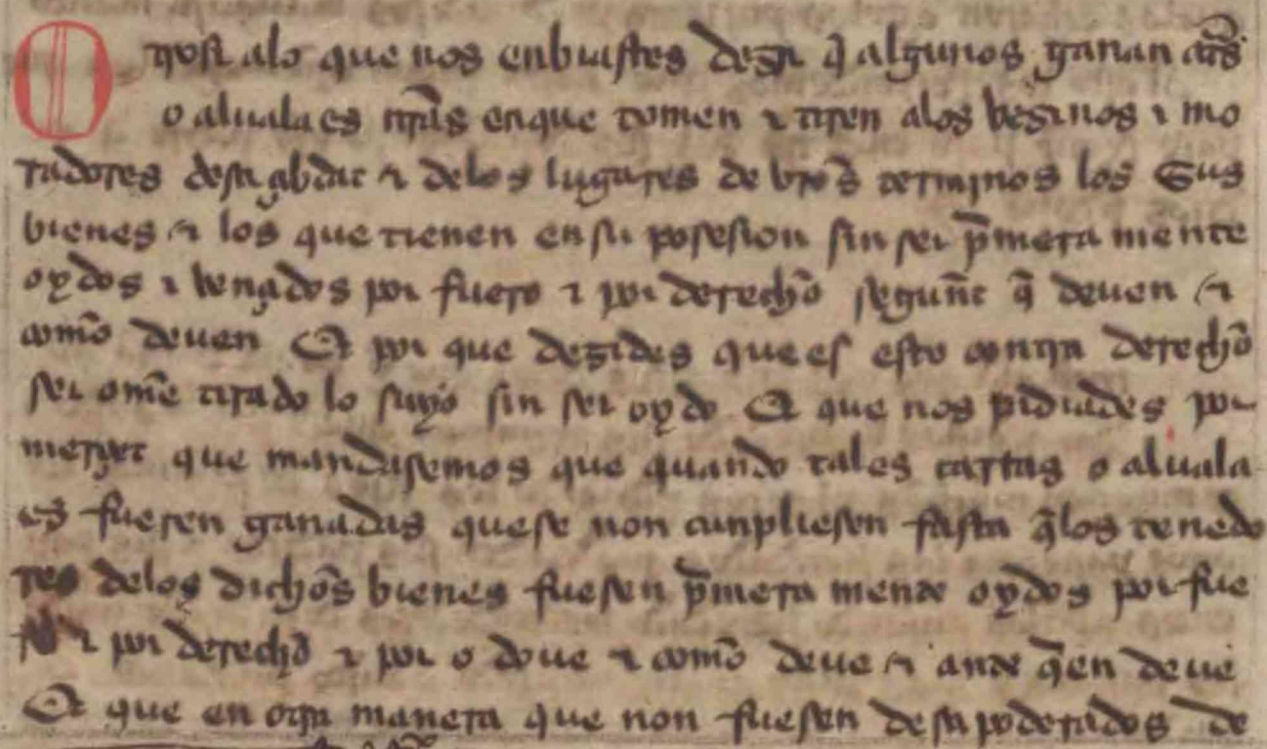 Otrosi alo que nos enbiastes dezir q̃ algunos ganan cr̃as
o alualaes nr̃as enque tomen ⁊ tiren alos vezinos ⁊ mo
radores desa çibdat ⁊ delos lugares de vr̃os terminos los sus
bienes ⁊ los que tienen en su posesion sin ser p̃mera mente
oydos ⁊ vençidos por fuero ⁊ por derechõ segunt q̃ deuen ⁊
comõ deuen Et por que dezides que es esto contra derechõ
ser om̃e tirado lo suyo sin ser oydo Et que nos pidiades por
merçet que mandasemos que quando tales cartas o aluala
es fuesen ganadas quese non cunpliesen fasta q̃los tenedo
res delos dichõs bienes fuesen p̃mera mente oydos por fue
ro ⁊ por derechõ ⁊ por o deue ⁊ comõ deue ⁊ ante q̃en deue
Et que en otra manera que non fuesen desapoderados de